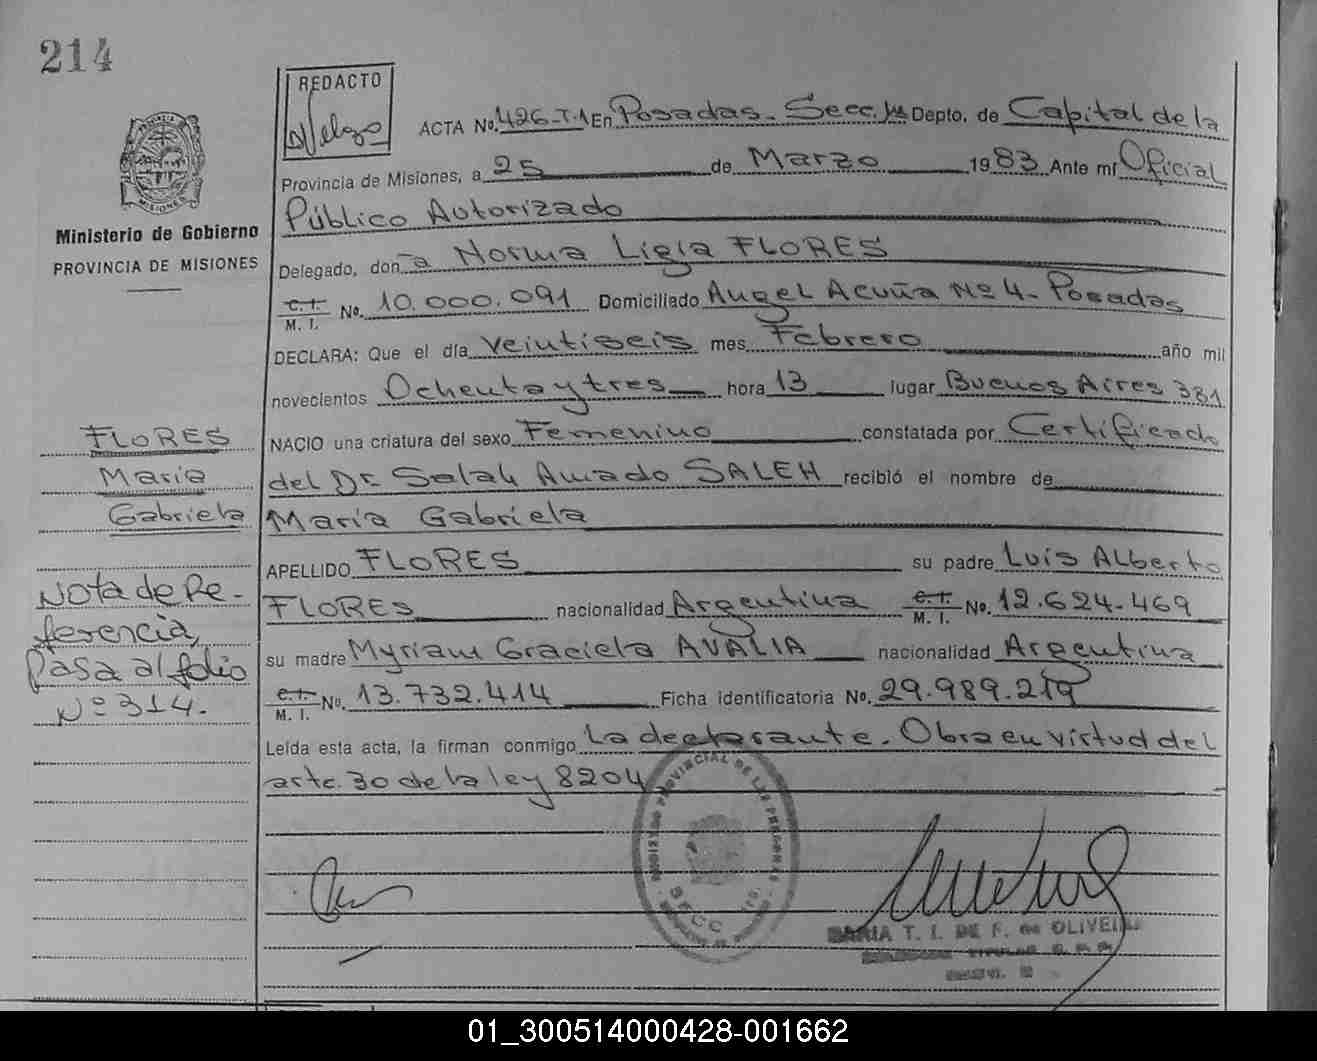 214
REDACTO
DVelozo
ACTA No. 426-T.1 En Posadas. Secc. 1ra Depto. de Capital de la
Provincia de Misiones, a 25 de Marzo 1983 Ante mí Oficial
Público Autorizado
Delegado, don ña Norma Ligia FLORES
C.I. M. I. No. 10.000.091 Domiciliado Angel Acuña Nº 4 - Posadas
DECLARA: Que el día veintiseis mes Febrero año mil
novecientos Ochenta y tres hora 13 lugar Buenos Aires 381
NACIO una criatura del sexo Femenino constatada por Certificado
del Dr. Salah Amado SALEH recibió el nombre de
María Gabriela
APELLIDO FLORES su padre Luis Alberto
FLORES nacionalidad Argentina C.I. M. I. No. 12.624.469
su madre Myriam Graciela AVALIA nacionalidad Argentina
C.I. M. I. No. 13.732.414 Ficha identificatoria No. 29.989.219
Leída esta acta, la firman conmigo La declarante. Obra en virtud del
artc. 30 de la ley 8204
MISIONES
Ministerio de Gobierno
PROVINCIA DE MISIONES
FLORES
María
Gabriela
Nota de Re-
ferencia,
Pasa al folio
Nº 314.
PROVINCIAL DE LAS PERSONAS
SECC. 1ra.
MARIA T. I. DE F. de OLIVEIRA
TITULAR
01_300514000428-001662